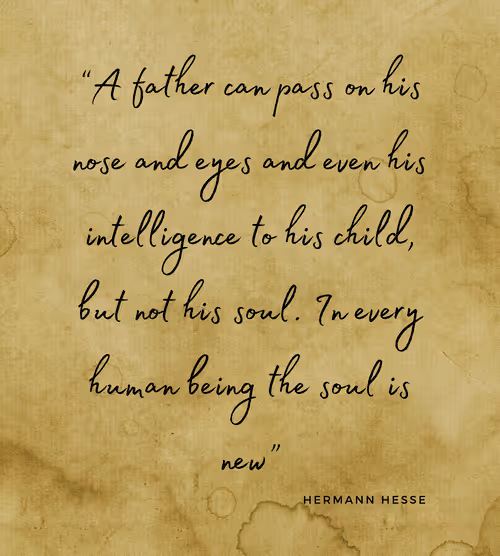 “A father can pass on his
nose and eyes and even his
intelligence to his child,
but not his soul. In every
human being the soul is
new”
HERMANN HESSE